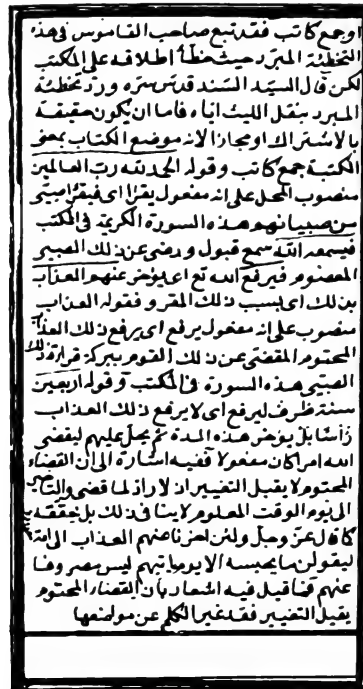 اوجمع كاتب فقد تبع صاحب القاموس في هذه
التخطئة المبرد حيث خطأ اطلاقه على المكتب
لكن قال السيد السند قدس سره ورد تخطئة
المبرد بنقل الليث اياه فاما ان يكون حقيقة
بالاشتراك او مجازا لانه موضع الكتاب بمعنى
الكتبة جمع كاتب وقوله الحمد لله رب العالمين
منصوب المحل على انه مفعول يقرا اى فيقرا صبيّ
من صبيانهم هذه السورة الكريمة في المكتب
فيسمعه الله سمع قبول ورضى عن ذلك الصبي
المعصوم فيرفع الله تع اى يؤخر عنهم العذاب
بذلك اى بسبب ذلك المقرو فقوله العذاب
منصوب على انه مفعول يرفع اى يرفع ذلك العذاب
المحتوم المقضى عن ذلك القوم ببركة قراءة ذلك
الصبي هذه السورة في المكتب وقوله اربعين
سنة ظرف ليرفع اى لا يرفع ذلك العذاب
رأسا بل يؤخر هذه المدة ثم يحل عليهم ليقضى
الله امرا كان مفعولا ففيه اشارة الى ان القضاء
المحتوم لا يقبل التغيير اذ لا راد لما قضى والتاخير
الى يوم الوقت المعلوم لا ينافى ذلك بل يحققه
كما قال عز وجل ولئن اخرنا عنهم العذاب الى امة
ليقولن ما يحبسه الا يوم ياتيهم ليس مصروفا
عنهم فما قيل فيه اشعار بان القضاء المحتوم
يقبل التغيير فقد غير الكلم عن مواضعها